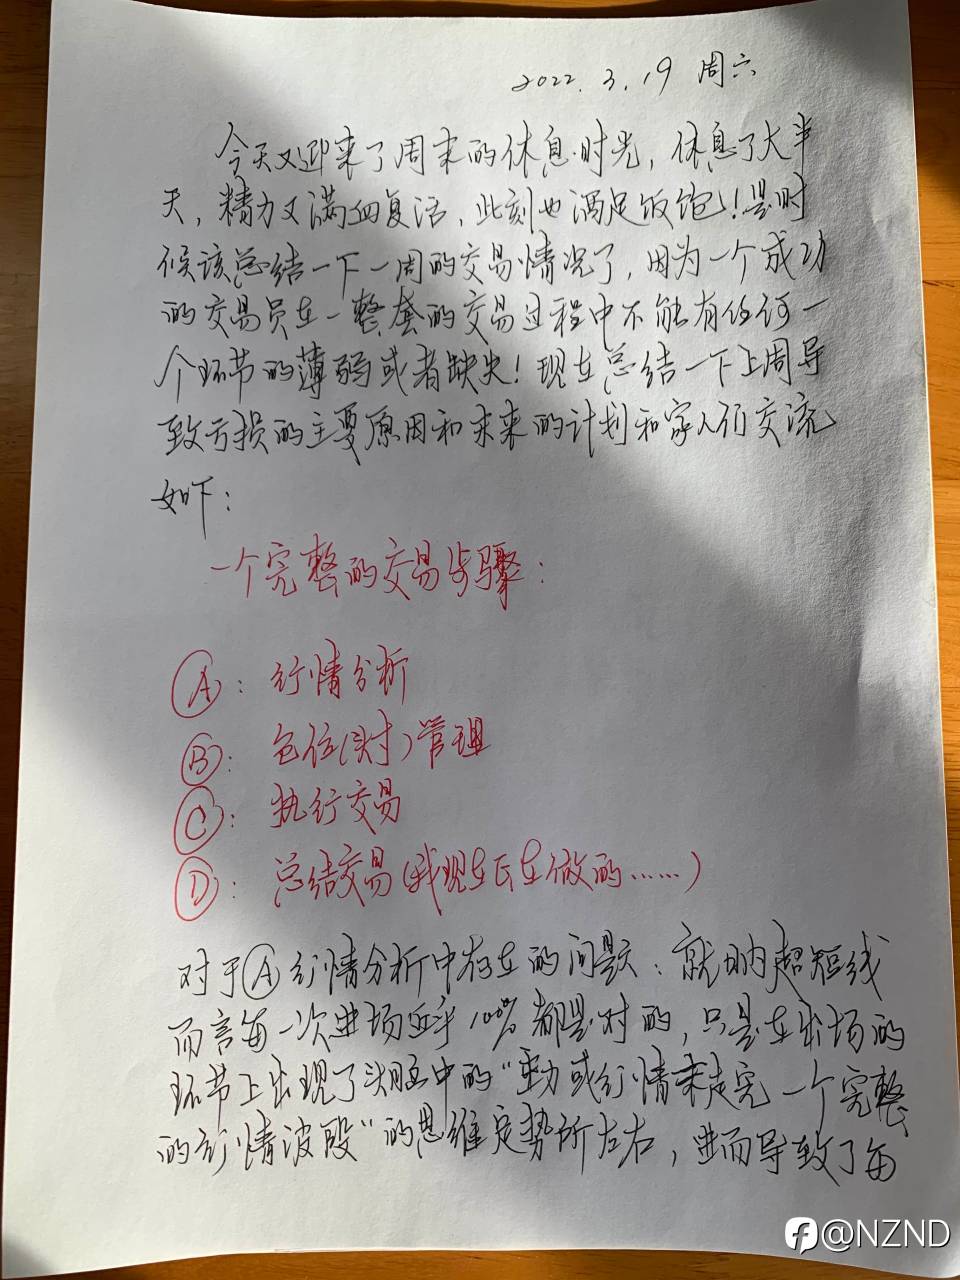 2022.3.19 周六
今天又迎来了周末的休息时光，休息了大半
天，精力又满血复活，此刻也酒足饭饱！是时
候该总结一下一周的交易情况了，因为一个成功
的交易员在一整套的交易过程中不能有任何一
个环节的薄弱或者缺失！现在总结一下上周导
致亏损的主要原因和未来的计划和家人们交流
如下：
一个完整的交易步骤：
Ⓐ：行情分析
Ⓑ：仓位(头寸)管理
Ⓒ：执行交易
Ⓓ：总结交易(我现在正在做的……)
对于Ⓐ行情分析中存在的问题：就日内超短线
而言每一次进场近乎100%都是对的，只是在出场的
环节上出现了头脑中的"主力或行情未走完一个完整
的行情波段"的思维定势所左右，进而导致了每
@NZND